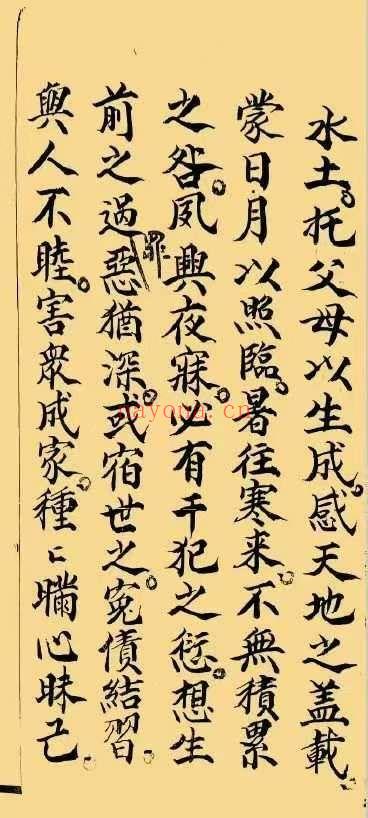 水土。托父母以生成。感天地之盖載。
蒙日月以照臨。暑往寒来。不無積累
之咎。夙興夜寐。必有干犯之愆。想生
前之過惡猶深。或宿世之寃債結習。
罪
與人不睦。害衆成家。種〻瞞心昧己
nayona.cn